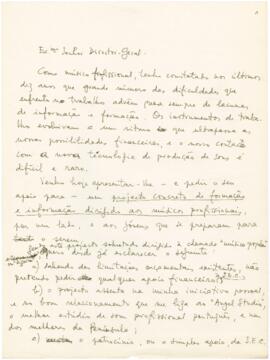 Ex.mo Senhor Director-Geral.
Como músico profissional, tenho constatado nos últimos
dez anos que grande número das dificuldades que
enfrenta o trabalho advêm quase sempre de lacunas
de informação e formação. Os instrumentos de traba-
lho evoluíram a um ritmo que ultrapassa as
nossas possibilidades financeiras, e o nosso contacto
com a nova tecnologia de produção de sons é
difícil e raro.
Venho hoje apresentar-lhe - e pedir o seu
apoio para - um projecto concreto de formação
e informação dirigido aos músicos profissionais,
por um lado, e aos jóvens que se preparam para
o serem.
projecto sobretudo dirigido à chamada "música popular"
quero desde já esclarecer o seguinte:
a) sabendo das limitações orçamentais existentes, não
pretendo pedir qualquer apoio financeiro
b) o projecto assenta na minha iniciativa pessoal,
e no bom relacionamento que me liga ao "Angel Studio",
o melhor estúdio de som profissional português, e um
dos melhores da Península;
c) o patrocínio, ou o simples apoio, da S.E.C.